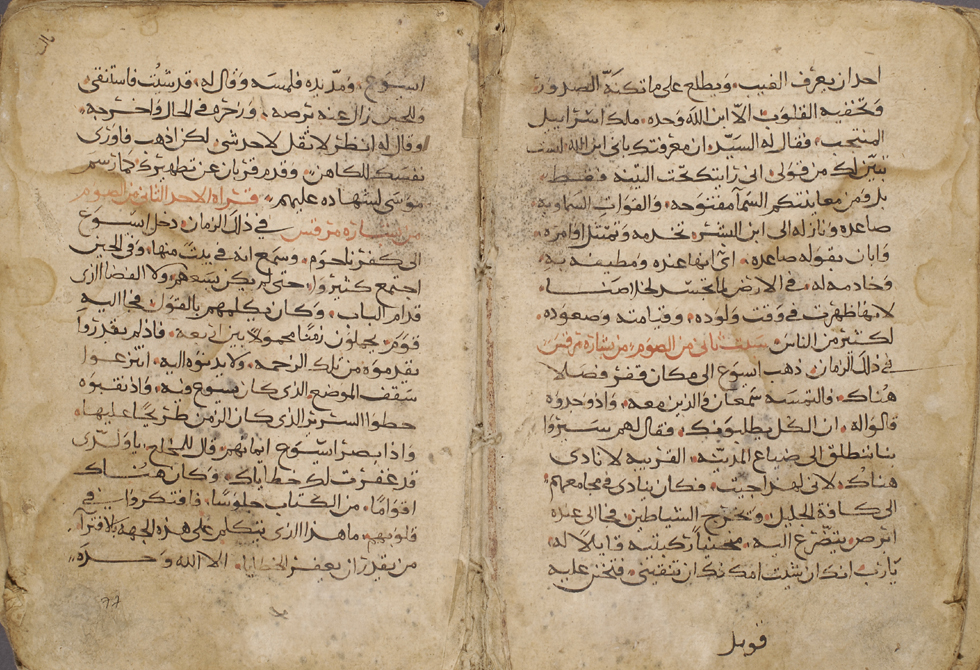 احد ان يعرف الغيب، ويطلع على ما تكنه الصدور
وتخفيه القلوب، الا ابن الله وحده، ملك اسرائيل
المنتجب، فقال له السيد، ان معرفتك باني ابن الله ليست
تبين لك من قولي، اني رايتك تحت التينة فقط،
بل ومن معاينتكم السما مفتوحه، والقوات السماويه
صاعده ونازله الى ابن البشر، تخدمه وتمتثل اوامره،
وابان بقوله صاعده، اي انها عنده ومطيعة له،
وخادمه له، في الارض لما تجسد لخلاصنا،
لانها ظهرت في وقت ولوده، وقيامته وصعوده،
لكثير من الناس، سبت ثاني من الصوم، من بشارة مرقس
في ذلك الزمان، ذهب اسوع الى مكان قفر فصلا
هناك، والتمسه سمعان والذين معه، واذ وجدوه
قالوا له، ان الكل يطلبونك، فقال لهم سيروا
بنا ننطلق الى ضياع المدينه، القريبه لانادي
هناك، لاني لهذا جيت، فكان ينادي في مجامعهم
الى كافة الجليل، ويخرج الشياطين، فجا الى عنده
ابرص يتضرع اليه، مجثيا ركبتيه قايلا له،
يا رب انك ان شيت امكنك ان تنقيني، فتحنن عليه
قوبل
اسوع، ومد يده فلمسه وقال له، قد شيت فاستنقي،
وللحين زال عنه برصه، وزجره في الحال واخرجه،
وقال له انظر لا تقل لاحد شي، لكن اذهب فاوري
نفسك للكاهن، وقدم قربان عن تطهيرك كما رسم
موسى لشهاده عليهم، قراة الاحد الثاني من الصوم
من بشارة مرقس في ذلك الزمان، دخل اسوع
الى كفرناحوم، وسمع انه في بيت منها، وفي الحين
اجتمع كثيروا، حتى لم يكن يسعهم ولا الفضا الذي
قدام الباب، وكان يكلمهم بالقول، فجا اليه
قوم، يحملون زمنا محمولا بين اربعة، فاذ لم يقدروا
يقدموه من تلك الزحمه، ولا يدنوه اليه، انتزعوا
سقف الموضع الذي كان يسوع فيه، واذ نقبوه
حطوا السرير الذي كان الزمن طريحا عليها،
واذ ابصر اسوع ايمانهم، قال للمخلع، يا ولدي
قد غفرت لك خطاياك، وكان هناك
اقواما، من الكتاب جلوسا، فافتكروا في
قلوبهم، ما هذا الذي يتكلم على هذه الجهه بالافترا،
من يقدر ان يغفر الخطايا، الا الله وحده